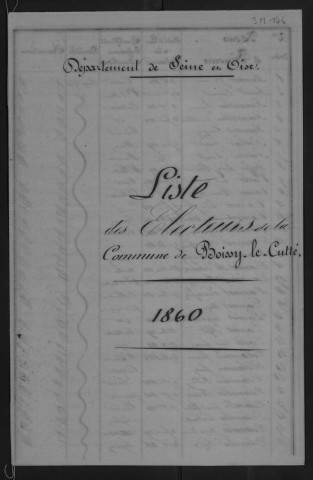 3M146
Département de Seine et Oise.
Liste
des Electeurs de la
Commune de Boissy-le-Cutté,
1860